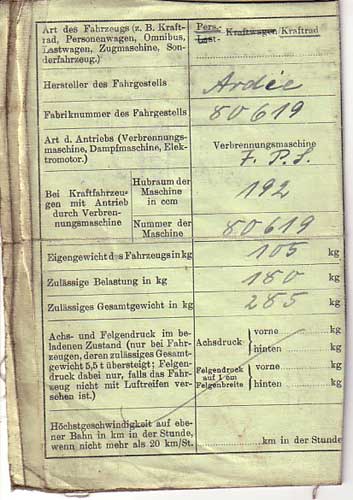 Art des Fahrzeugs (z. B. Kraft-
rad, Personenwagen, Omnibus,
Lastwagen, Zugmaschine, Son-
derfahrzeug.)
Pers.-
Last- Kraftwagen/Kraftrad
Hersteller des Fahrgestells
Ardie
Fabriknummer des Fahrgestells
80619
Art d. Antriebs (Verbrennungs-
maschine, Dampfmaschine, Elek-
tromotor.)
Verbrennungsmaschine
7. P.S.
Bei Kraftfahrzeu-
gen mit Antrieb
durch Verbren-
nungsmaschine
Hubraum der
Maschine
in ccm
192
Nummer der
Maschine
80619
Eigengewicht des Fahrzeugs in kg
105 kg
Zulässige Belastung in kg
180 kg
Zulässiges Gesamtgewicht in kg
285 kg
Achs- und Felgendruck im be-
ladenen Zustand (nur bei Fahr-
zeugen, deren zulässiges Gesamt-
gewicht 5,5 t übersteigt; Felgen-
druck dabei nur, falls das Fahr-
zeug nicht mit Luftreifen ver-
sehen ist.)
Achsdruck
vorne kg
hinten kg
Felgendruck
auf 1 cm
Felgenbreite
vorne kg
hinten kg
Höchstgeschwindigkeit auf ebe-
ner Bahn in km in der Stunde,
wenn nicht mehr als 20 km/St.
km in der Stunde